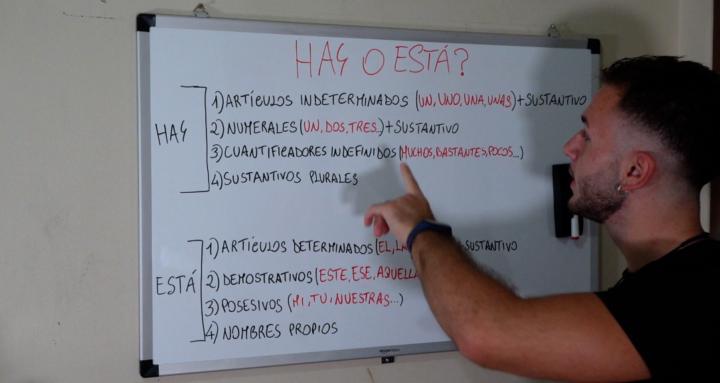 HAY O ESTÁ?
HAY
1) ARTÍCULOS INDETERMINADOS (UN, UNO, UNA, UNAS) + SUSTANTIVO
2) NUMERALES (UN, DOS, TRES..) + SUSTANTIVO
3) CUANTIFICADORES INDEFINIDOS (MUCHOS, BASTANTES, POCOS...)
4) SUSTANTIVOS PLURALES
ESTÁ
1) ARTÍCULOS DETERMINADOS (EL, LA SUSTANTIVO
2) DEMOSTRATIVOS (ESTE, ESE, AQUELLA
3) POSESIVOS (MI, TU, NUESTRAS...)
4) NOMBRES PROPIOS